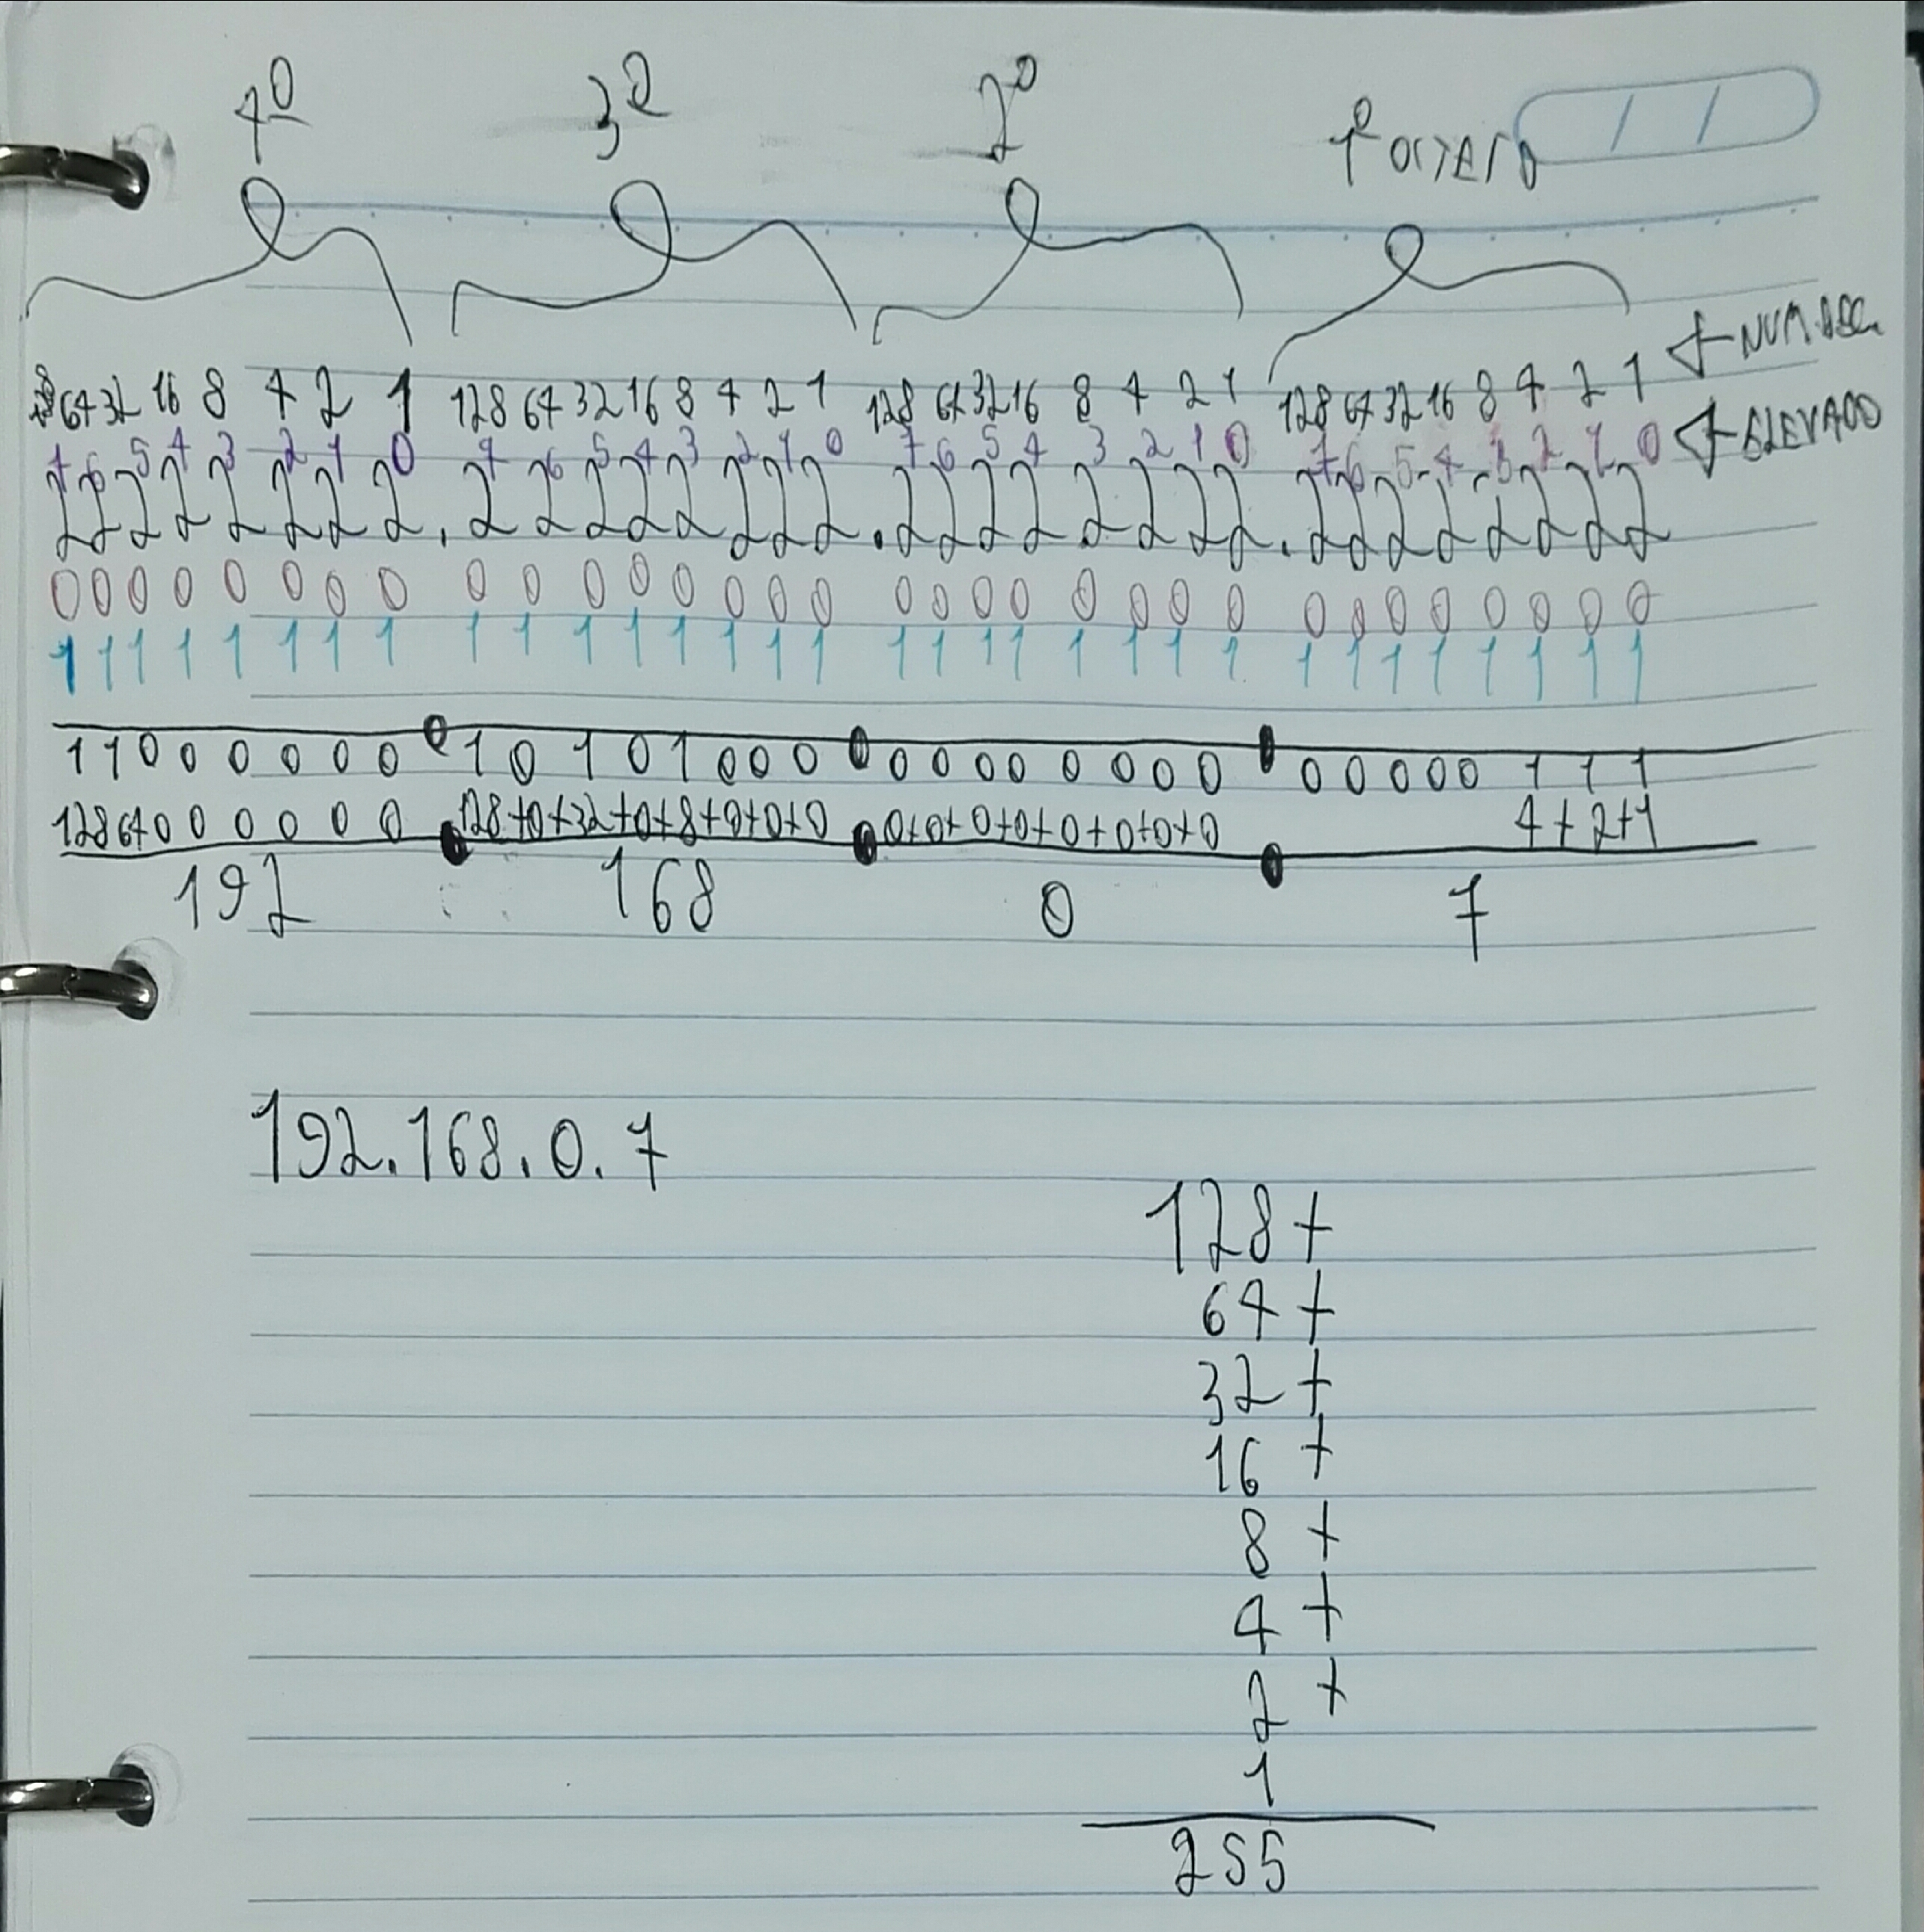 4º 3º 2º 1º OCTETO
128 64 32 16 8 4 2 1 128 64 32 16 8 4 2 1 128 64 32 16 8 4 2 1 128 64 32 16 8 4 2 1 ← NUM. DEC.
7 6 5 4 3 2 1 0 7 6 5 4 3 2 1 0 7 6 5 4 3 2 1 0 7 6 5 4 3 2 1 0 ← ELEVADO
2 2 2 2 2 2 2 2 . 2 2 2 2 2 2 2 2 . 2 2 2 2 2 2 2 2 . 2 2 2 2 2 2 2 2
0 0 0 0 0 0 0 0 0 0 0 0 0 0 0 0 0 0 0 0 0 0 0 0 0 0 0 0 0 0 0 0
1 1 1 1 1 1 1 1 1 1 1 1 1 1 1 1 1 1 1 1 1 1 1 1 1 1 1 1 1 1 1 1
1 1 0 0 0 0 0 0 . 1 0 1 0 1 0 0 0 . 0 0 0 0 0 0 0 0 . 0 0 0 0 0 1 1 1
128 64 0 0 0 0 0 0 . 128+0+32+0+8+0+0+0 . 0+0+0+0+0+0+0+0 . 4+2+1
192 168 0 7
192.168.0.7
128+
64+
32+
16+
8+
4+
2+
1
255